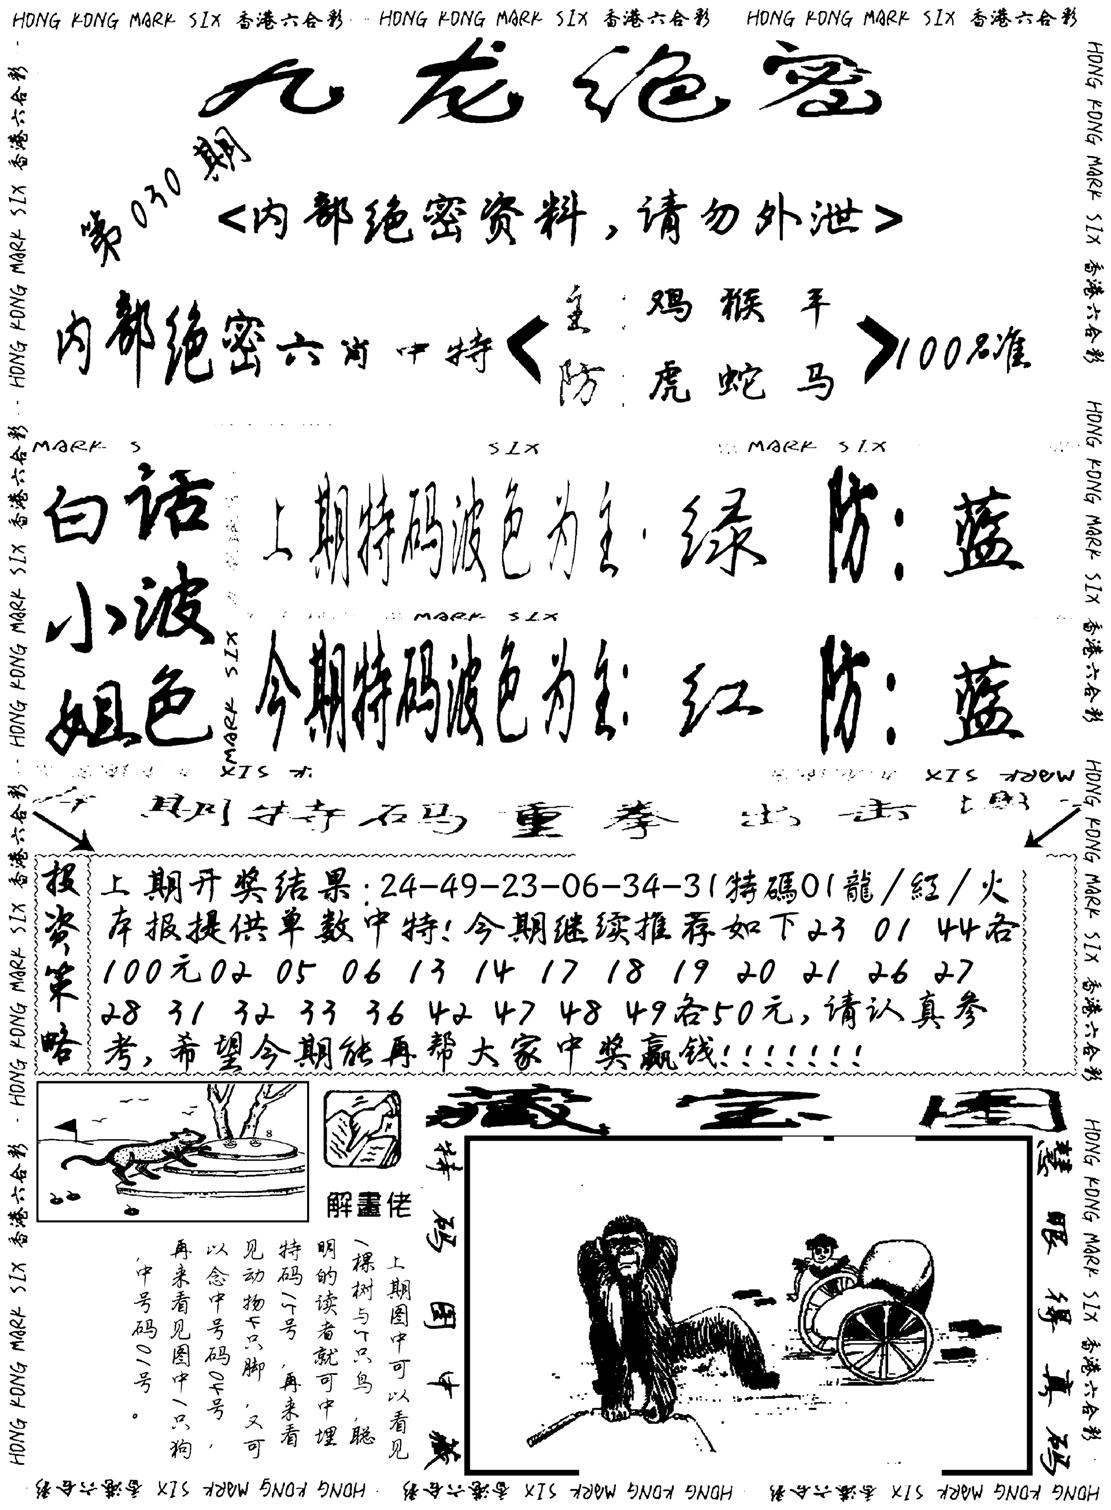 HONG KONG MARK SIX 香港六合彩 HONG KONG MARK SIX 香港六合彩 HONG KONG MARK SIX 香港六合彩
九龙绝密
第030期
<内部绝密资料,请勿外泄>
内部绝密六肖中特
主:鸡猴羊
防:虎蛇马
100%准
MARK S SIX MARK SIX
白话
小波
姐色
上期特码波色为主:绿 防:蓝
MARK SIX
今期特码波色为主:红 防:蓝
MARK SIX
期特码重拳出击
投资策略
上期开奖结果:24-49-23-06-34-31特碼01龍/紅/火
本报提供单数中特!今期继续推荐如下23 01 44各
100元02 05 06 13 14 17 18 19 20 21 26 27
28 31 32 33 36 42 47 48 49各50元,请认真参
考,希望今期能再帮大家中奖赢钱!!!!!!!
8
解畫佬
藏宝图
特码图中藏
慧眼得真码
上期图中可以看见
1棵树与7只鸟,聪
明的读者就可中埋
特码17号,再来看
见动物4只脚,又可
以念中号码04号,
再来看见图中1只狗
,中号码01号。
HONG KONG MARK SIX 香港六合彩 HONG KONG MARK SIX 香港六合彩 HONG KONG MARK SIX 香港六合彩 HONG KONG MARK SIX 香港六合彩
HONG KONG MARK SIX 香港六合彩 HONG KONG MARK SIX 香港六合彩 HONG KONG MARK SIX 香港六合彩 HONG KONG MARK SIX 香港六合彩
HONG KONG MARK SIX 香港六合彩 HONG KONG MARK SIX 香港六合彩 HONG KONG MARK SIX 香港六合彩